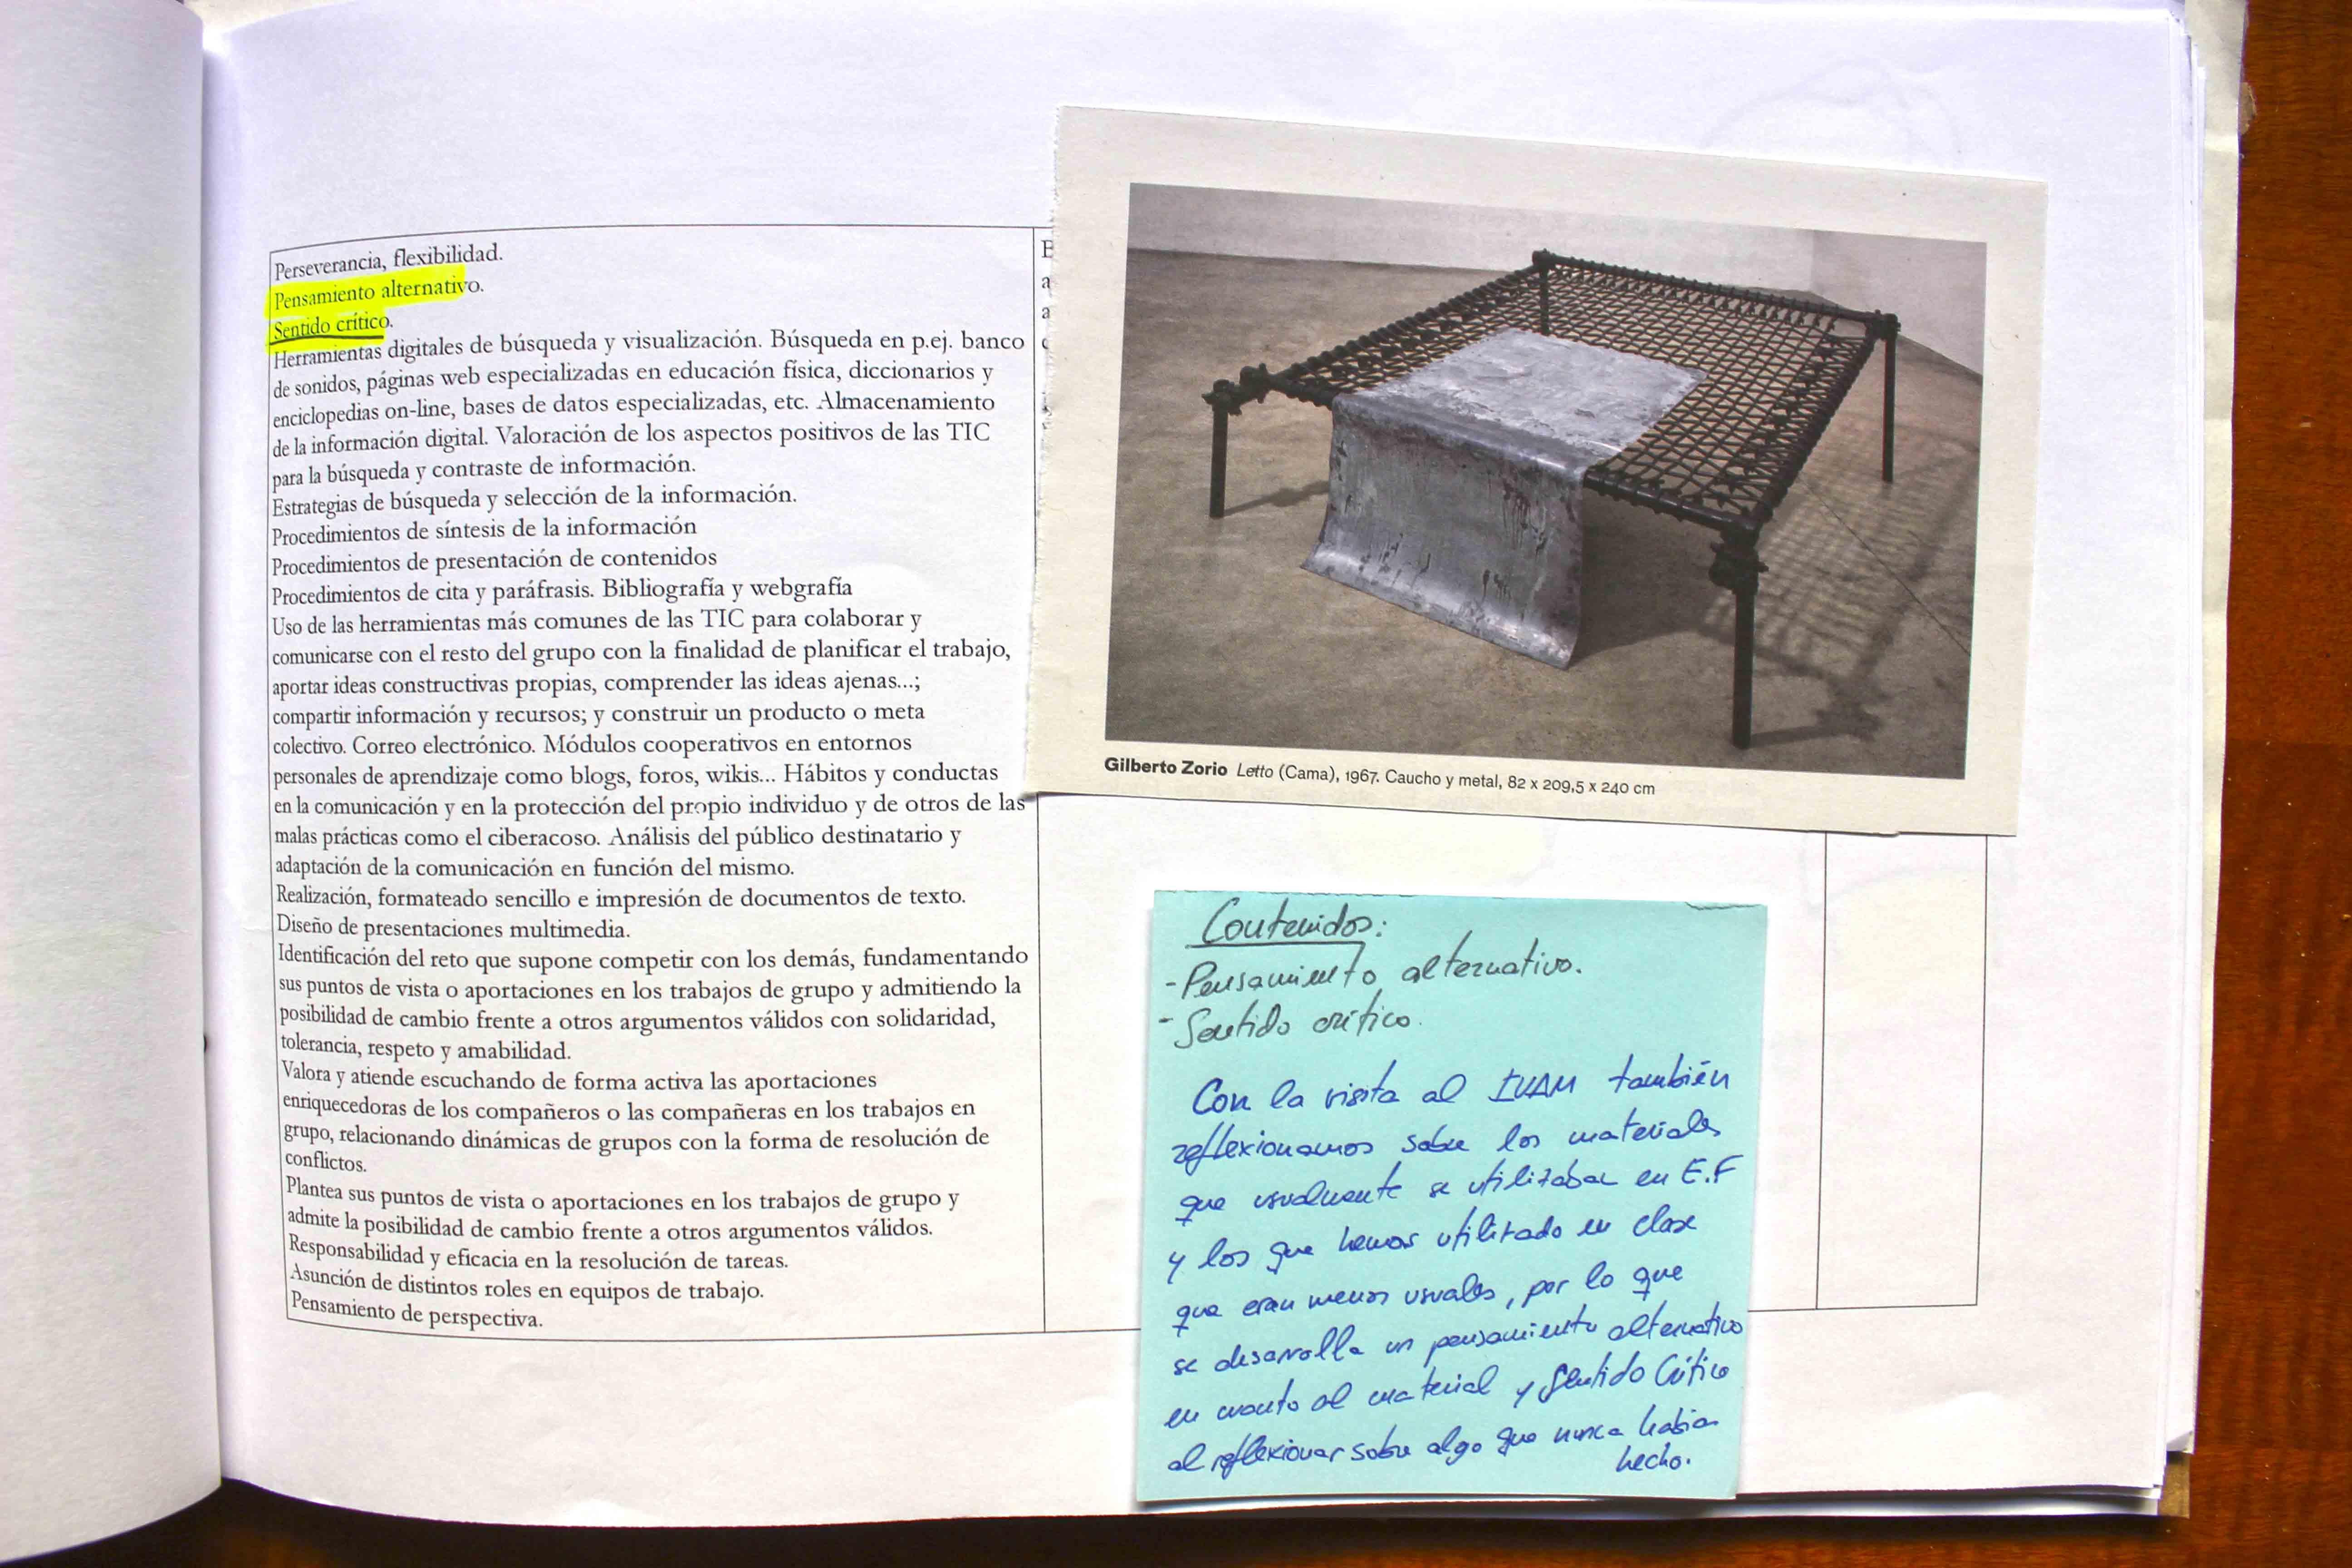 Perseverancia, flexibilidad.
Pensamiento alternativo.
Sentido crítico.
Herramientas digitales de búsqueda y visualización. Búsqueda en p.ej. banco
de sonidos, páginas web especializadas en educación física, diccionarios y
enciclopedias on-line, bases de datos especializadas, etc. Almacenamiento
de la información digital. Valoración de los aspectos positivos de las TIC
para la búsqueda y contraste de información.
Estrategias de búsqueda y selección de la información.
Procedimientos de síntesis de la información
Procedimientos de presentación de contenidos
Procedimientos de cita y paráfrasis. Bibliografía y webgrafía
Uso de las herramientas más comunes de las TIC para colaborar y
comunicarse con el resto del grupo con la finalidad de planificar el trabajo,
aportar ideas constructivas propias, comprender las ideas ajenas...;
compartir información y recursos; y construir un producto o meta
colectivo. Correo electrónico. Módulos cooperativos en entornos
personales de aprendizaje como blogs, foros, wikis... Hábitos y conductas
en la comunicación y en la protección del propio individuo y de otros de las
malas prácticas como el ciberacoso. Análisis del público destinatario y
adaptación de la comunicación en función del mismo.
Realización, formateado sencillo e impresión de documentos de texto.
Diseño de presentaciones multimedia.
Identificación del reto que supone competir con los demás, fundamentando
sus puntos de vista o aportaciones en los trabajos de grupo y admitiendo la
posibilidad de cambio frente a otros argumentos válidos con solidaridad,
tolerancia, respeto y amabilidad.
Valora y atiende escuchando de forma activa las aportaciones
enriquecedoras de los compañeros o las compañeras en los trabajos en
grupo, relacionando dinámicas de grupos con la forma de resolución de
conflictos.
Plantea sus puntos de vista o aportaciones en los trabajos de grupo y
admite la posibilidad de cambio frente a otros argumentos válidos.
Responsabilidad y eficacia en la resolución de tareas.
Asunción de distintos roles en equipos de trabajo.
Pensamiento de perspectiva.
Gilberto Zorio Letto (Cama), 1967. Caucho y metal, 82 x 209,5 x 240 cm
Contenidos:
- Pensamiento alternativo.
- Sentido crítico.
Con la visita al IVAM también
reflexionamos sobre los materiales
que usualmente se utilizaban en E.F
y los que hemos utilizado en clase
que eran menos usuales, por lo que
se desarrolla un pensamiento alternativo
en cuanto al material y Sentido Crítico
al reflexionar sobre algo que nunca habían
hecho.